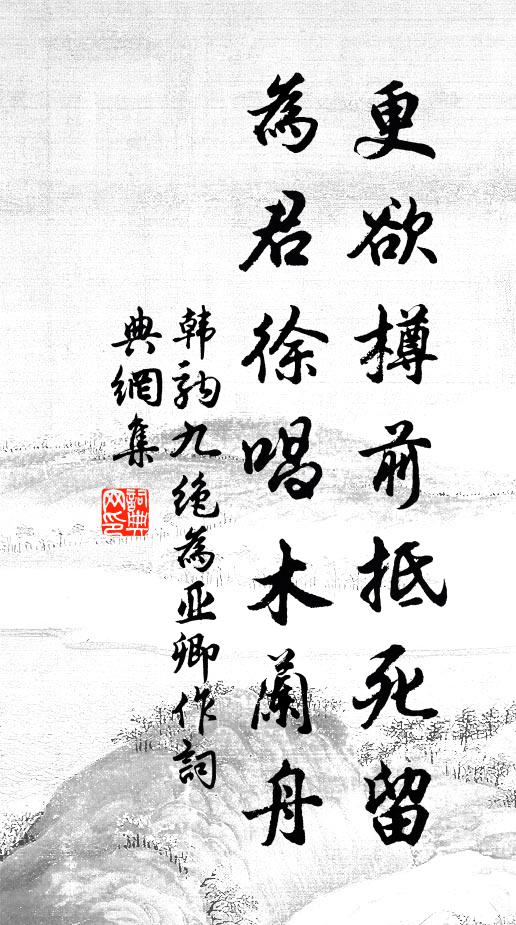 更欲樽前抵死留
為君徐唱木蘭舟
韩驹九绝為亚卿作詞
典網集
詞典网印